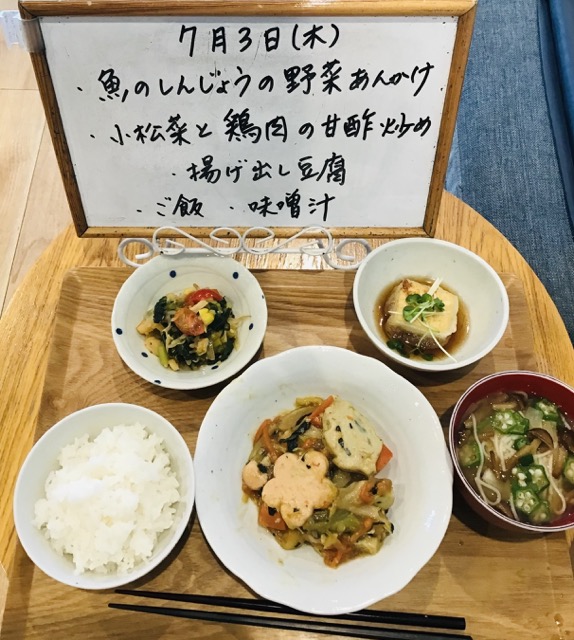 7月3日(木)
・魚のしんじょうの野菜あんかけ
・小松菜と鶏肉の甘酢炒め
・揚げ出し豆腐
・ご飯 ・味噌汁